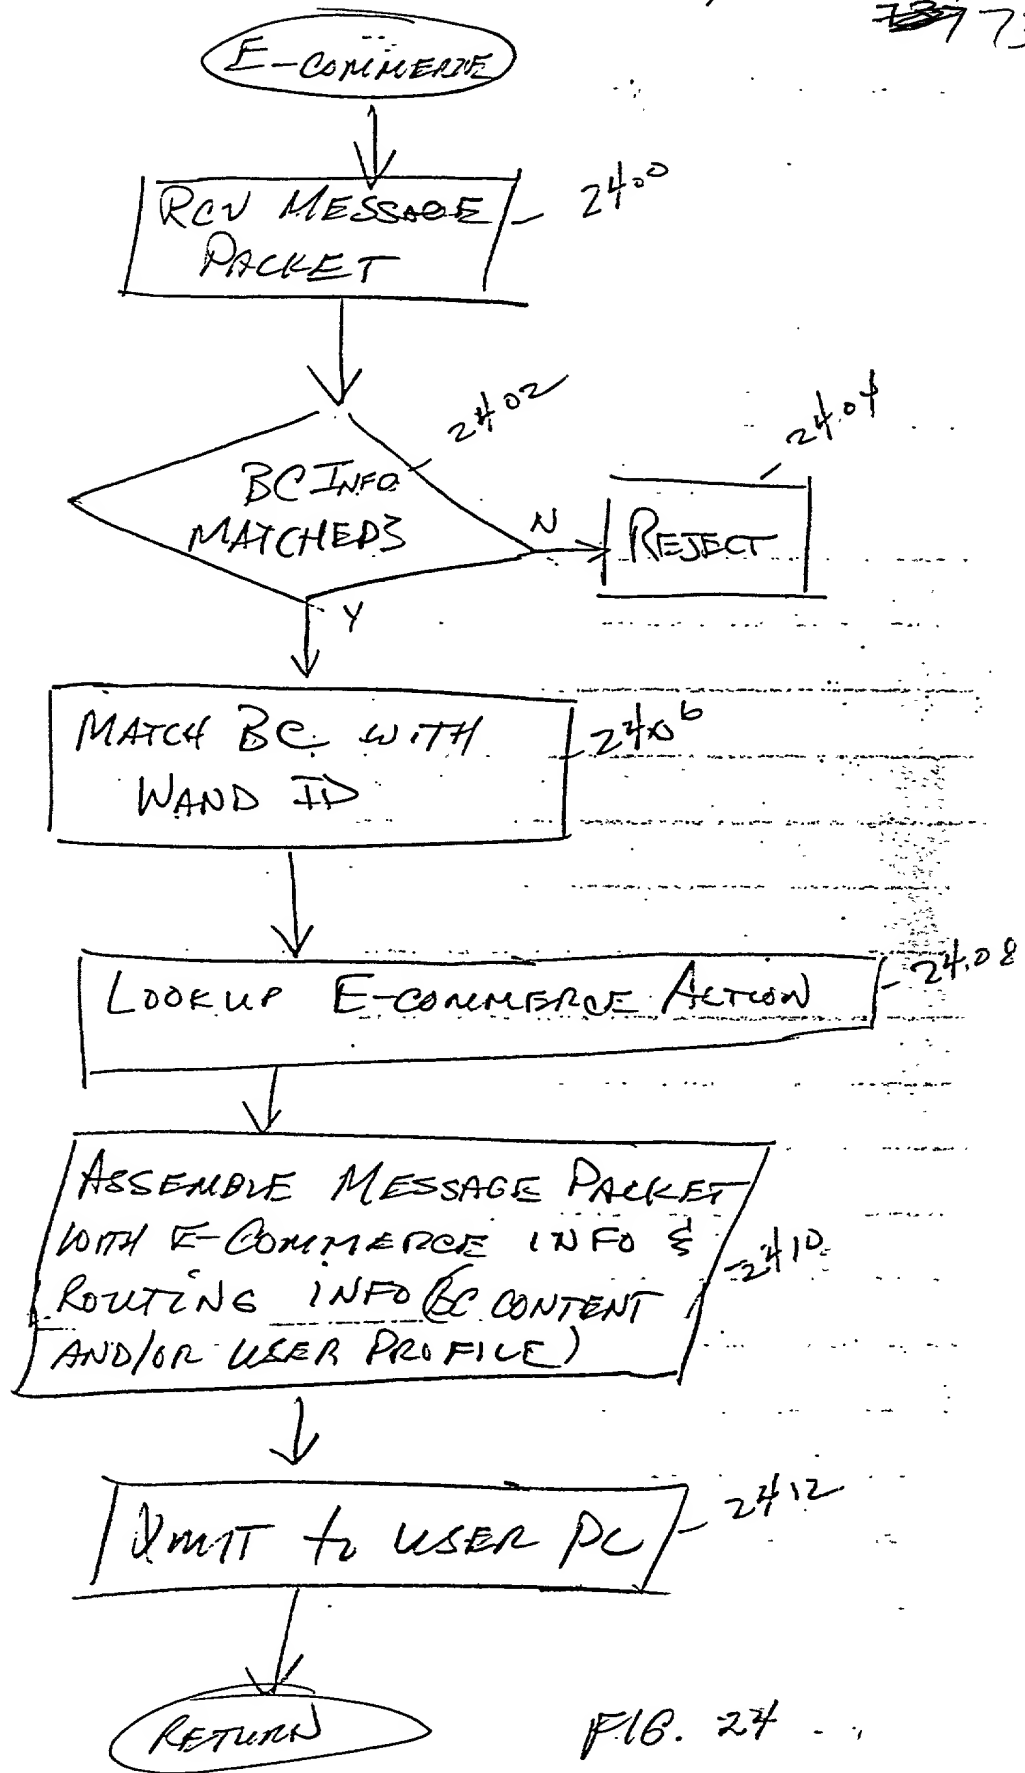 73
E-COMMERCE
RCV MESSAGE
PACKET
2400
2402
2404
BC INFO
MATCHED?
N
REJECT
Y
MATCH BC WITH
WAND ID
2406
LOOKUP E-COMMERCE ACTION
2408
ASSEMBLE MESSAGE PACKET
WITH E-COMMERCE INFO &
ROUTING INFO (BC CONTENT
AND/OR USER PROFILE)
2410
XMIT to USER PC
2412
RETURN
FIG. 24